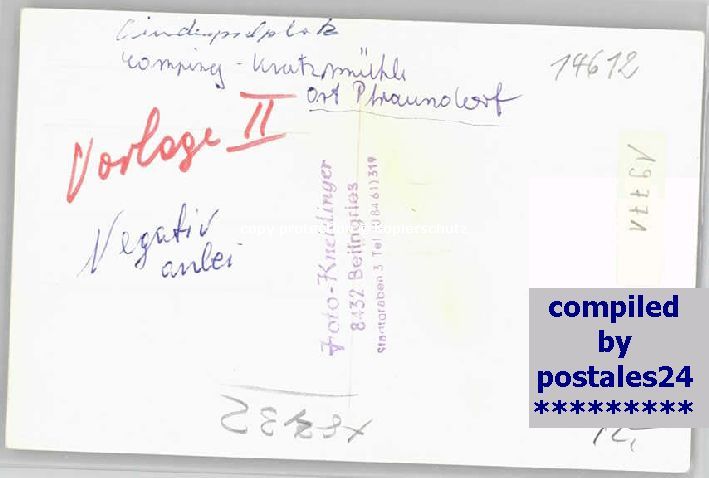 Kinderspielplatz
Camping - Kratzmühle
Ort Pfraundorf
14612
Vorlage II
Negativ
anbei
Foto-Knerdinger
8432 Beilngries
Stadtgraben 3 Tel. (08461) 319
19771
copy protection / Kopierschutz
compiled
by
postales24
*********
12,